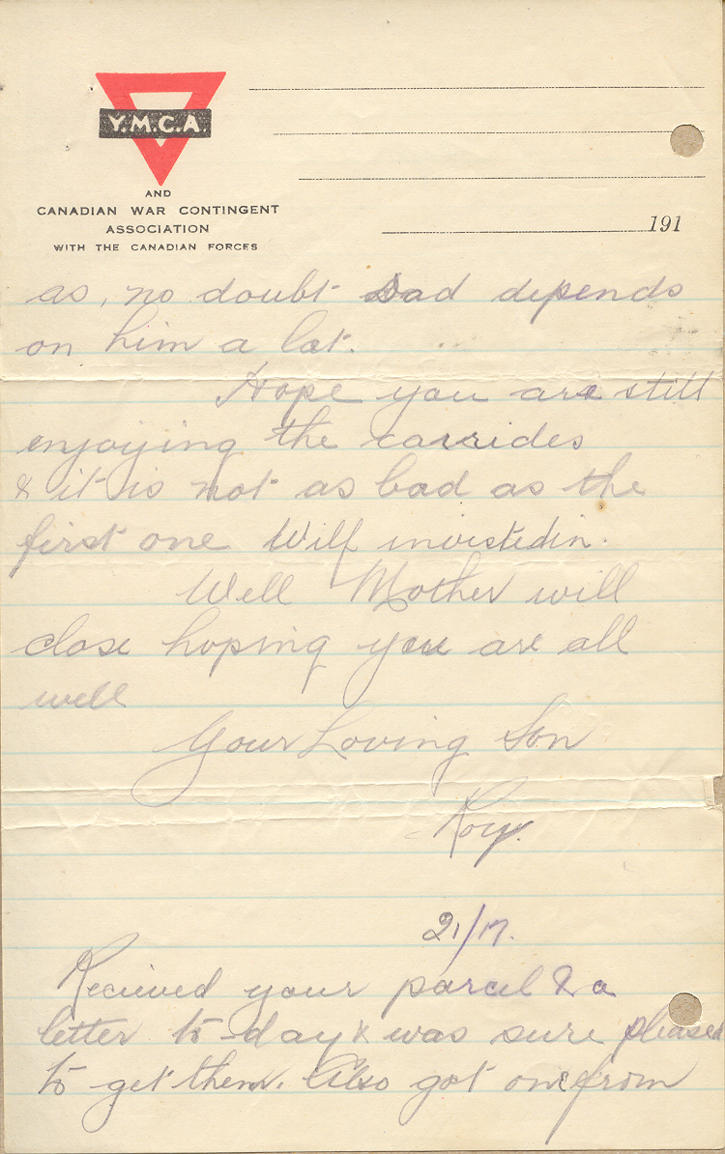 Y.M.C.A.
AND
CANADIAN WAR CONTINGENT
ASSOCIATION
WITH THE CANADIAN FORCES
191
as, no doubt Dad depends
on him a lot.
Hope you are still
enjoying the car rides
& it is not as bad as the
first one Wilf invistedin.
Well Mother will
close hoping you are all
well
Your Loving Son
Roy.
21/17.
Recieved your parcel & a
letter to-day & was sure pleased
to get them. Also got one from